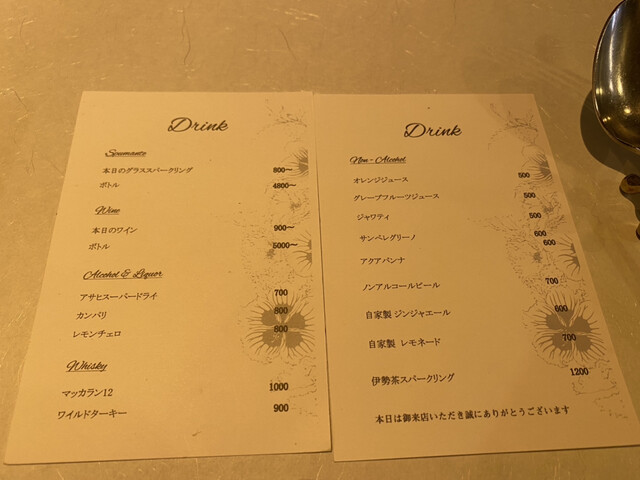 Drink
Spumante
本日のグラススパークリング 800～
ボトル 4800～
Wine
本日のワイン 900～
ボトル 5000～
Alcohol & Liquor
アサヒスーパードライ 700
カンパリ 800
レモンチェロ 800
Whisky
マッカラン12 1000
ワイルドターキー 900
Drink
Non - Alcohol
オレンジジュース 500
グレープフルーツジュース 500
ジャワティ 500
サンペレグリーノ 600
アクアパンナ 600
ノンアルコールビール 700
自家製 ジンジャエール 600
自家製 レモネード 700
伊勢茶スパークリング 1200
本日は御来店いただき誠にありがとうございます